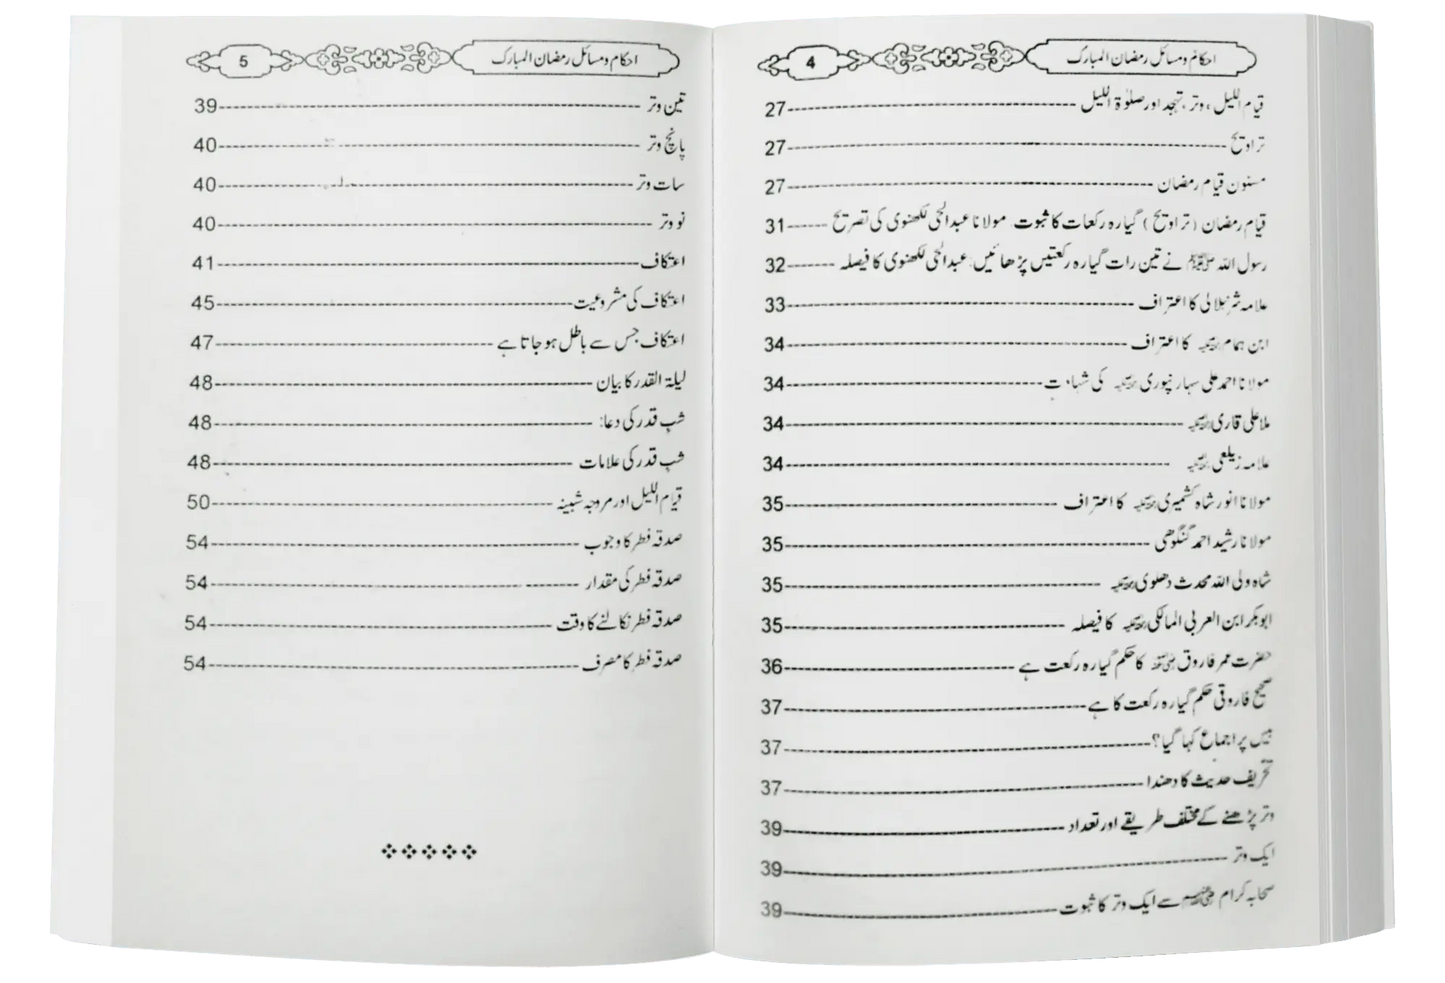 احکام و مسائل رمضان المبارک 4
قیام اللیل، وتر، تہجد اور صلوٰۃ اللیل 27
تراویح 27
مسنون قیام رمضان 27
قیام رمضان (تراویح) گیارہ رکعات کا ثبوت مولانا عبدالحئ لکھنوی کی تصریح 31
رسول اللہ ﷺ نے تین رات گیارہ رکعتیں پڑھائیں عبدالحئ لکھنوی کا فیصلہ 32
علامہ شرنبلالی کا اعتراف 33
ابن ہمام رحمہ اللہ کا اعتراف 34
مولانا احمد علی سہارنپوری رحمہ اللہ کی شہادت 34
ملا علی قاری رحمہ اللہ 34
علامہ زیلعی رحمہ اللہ 34
مولانا انور شاہ کشمیری رحمہ اللہ کا اعتراف 35
مولانا رشید احمد گنگوھی 35
شاہ ولی اللہ محدث دھلوی رحمہ اللہ 35
ابوبکر ابن العربی المالکی رحمہ اللہ کا فیصلہ 35
حضرت عمر فاروق رضی اللہ عنہ کا حکم گیارہ رکعت ہے 36
صحیح فاروقی حکم گیارہ رکعت کا ہے 37
بیس پر اجماع کہا گیا؟ 37
تحریف حدیث کا دھندا 37
وتر پڑھنے کے مختلف طریقے اور تعداد 39
ایک وتر 39
صحابہ کرام رضی اللہ عنہم سے ایک وتر کا ثبوت 39
احکام و مسائل رمضان المبارک 5
تین وتر 39
پانچ وتر 40
سات وتر 40
نو وتر 40
اعتکاف 41
اعتکاف کی مشروعیت 45
اعتکاف جس سے باطل ہو جاتا ہے 47
لیلۃ القدر کا بیان 48
شب قدر کی دعا: 48
شب قدر کی علامات 48
قیام اللیل اور مروجہ شبینہ 50
صدقہ فطر کا وجوب 54
صدقہ فطر کی مقدار 54
صدقہ فطر نکالنے کا وقت 54
صدقہ فطر کا مصرف 54